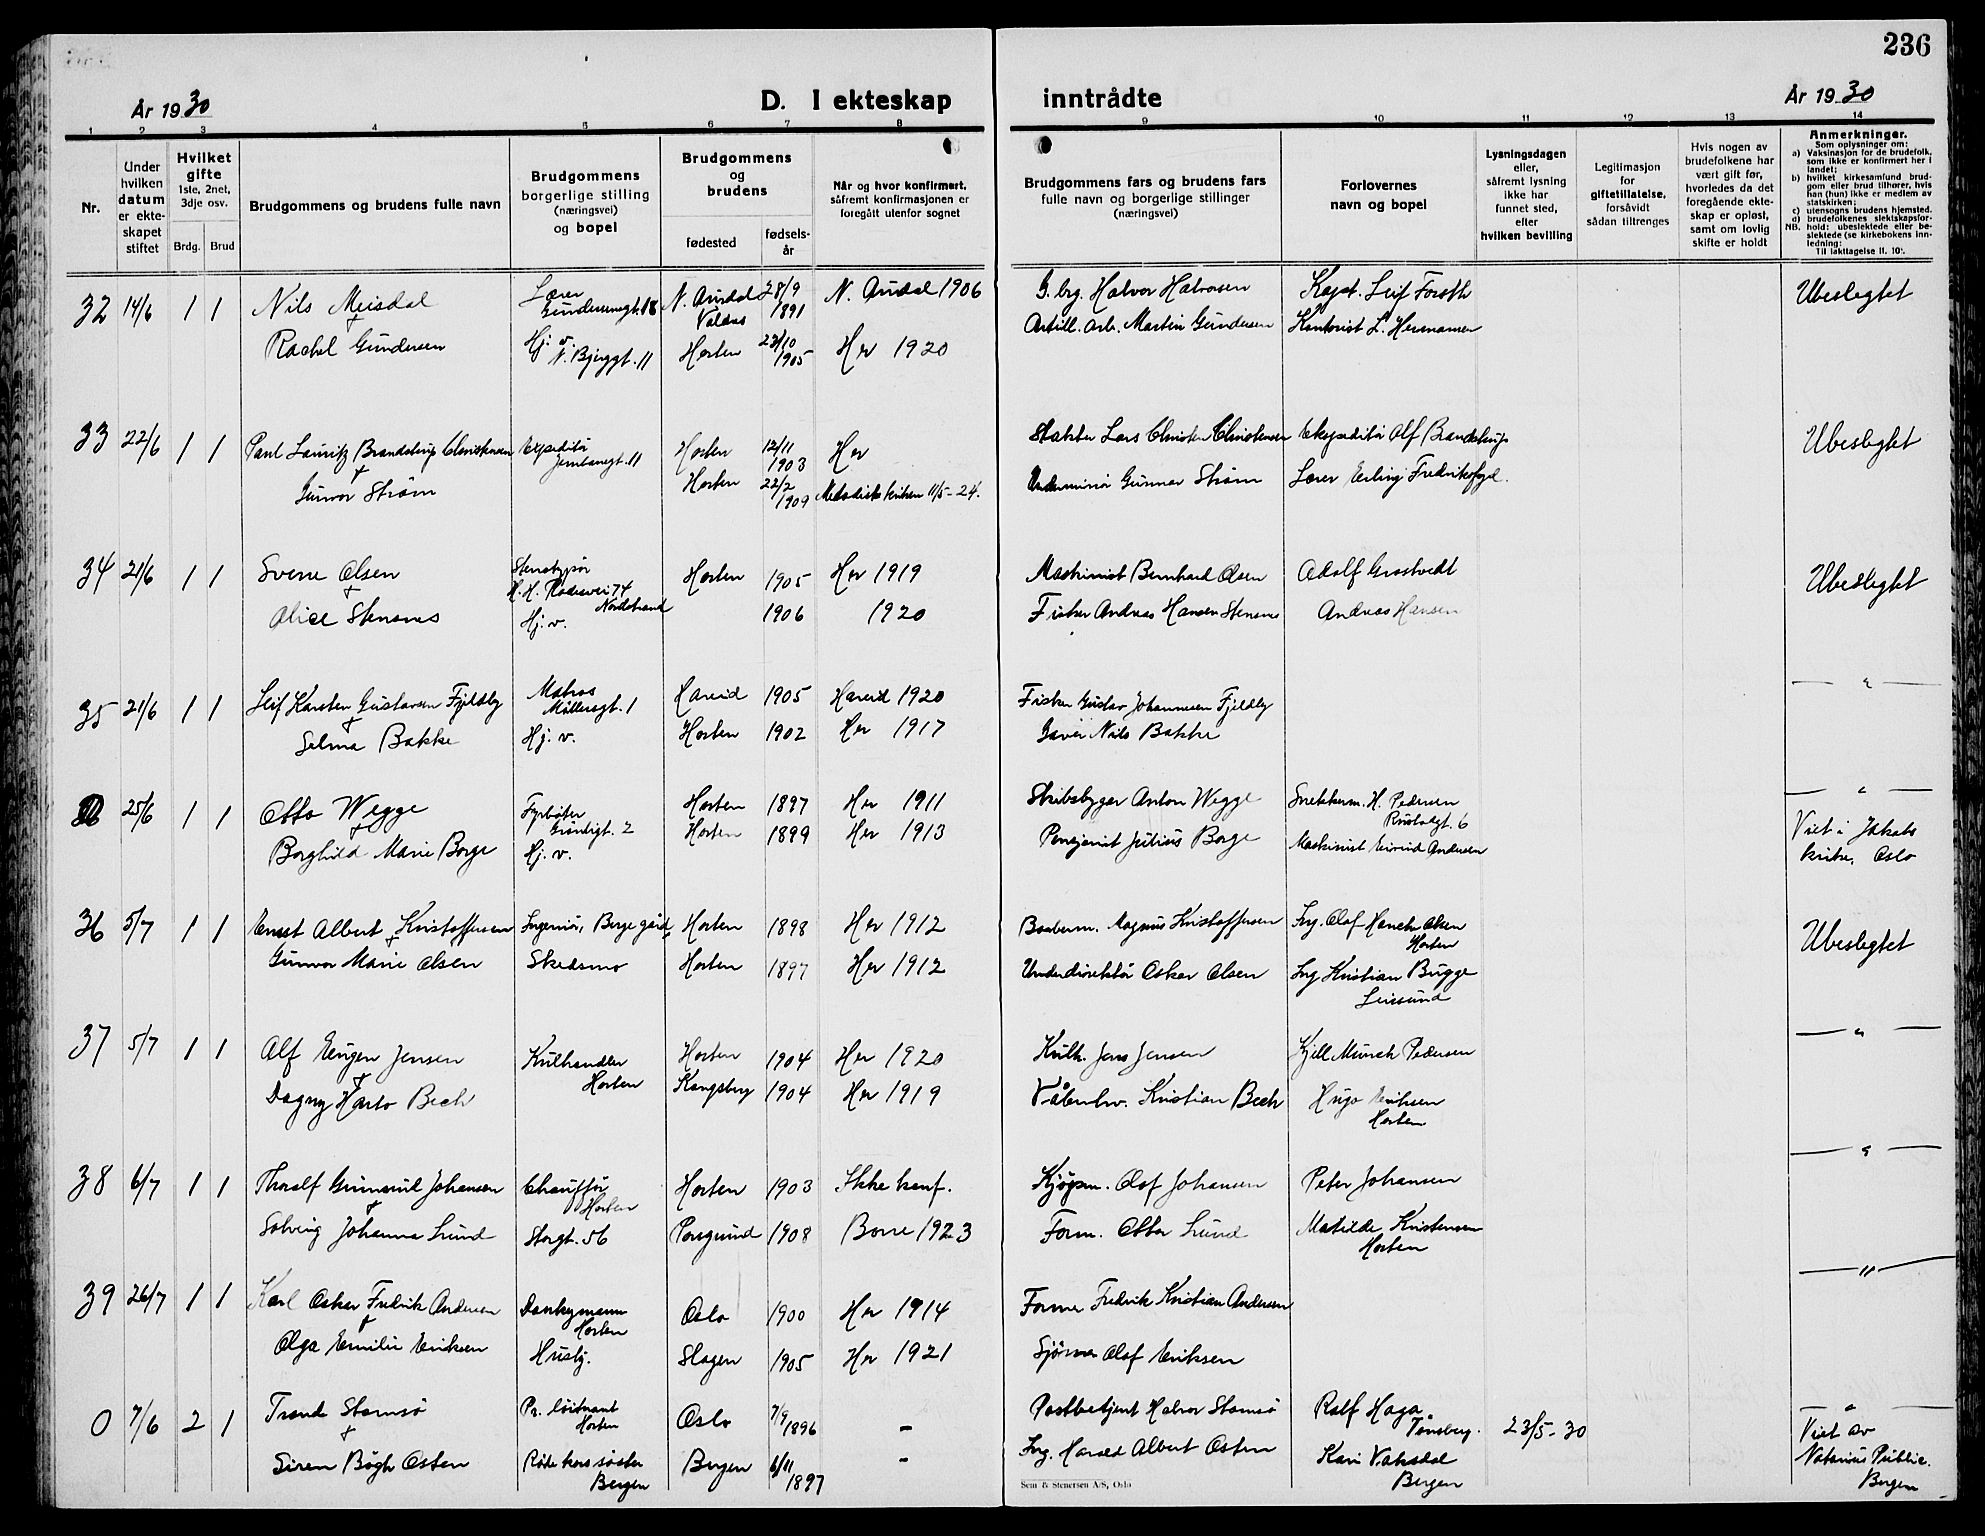 236
År 1930
D. I ekteskap inntrådte
År 1930
1 2 3 4 5 6 7 8 9 10 11 12 13 14
Nr.
Under hvilken datum er ekteskapet stiftet
Hvilket gifte 1ste, 2net, 3dje osv.
Brdg. Brud
Brudgommens og brudens fulle navn
Brudgommens borgerlige stilling (næringsvei) og bopel
Brudgommens og brudens
fødested
fødselsår
Når og hvor konfirmert, såfremt konfirmasjonen er foregått utenfor sognet
Brudgommens fars og brudens fars fulle navn og borgerlige stillinger (næringsvei)
Forlovernes navn og bopel
Lysningsdagen eller, såfremt lysning ikke har funnet sted, efter hvilken bevilling
Legitimasjon for giftetillatelse, forsåvidt sådan tiltrenges
Hvis nogen av brudefolkene har vært gift før, hvorledes da det foregående ekteskap er opløst, samt om lovlig skifte er holdt
Anmerkninger.
Som oplysninger om:
a) Vaksinasjon for de brudefolk, som ikke er konfirmert her i landet;
b) hvilket kirkesamfund brudgom eller brud tilhører, hvis han (hun) ikke er medlem av statskirken;
c) utensogns brudens hjemsted.
d) brudefolkenes slektskapsforhold: ubeslektede eller beslektede (se kirkebokens innledning:
NB. Til iakttagelse II. 10).
32 14/6 1 1 Nils Meisdal Lærer N. Aurdal 28/9 N. Aurdal 1906 G.brg. Halvor Halvorsen Kapt. Leif Forsth Ubeslegtet
Gundersensgt. 18 Valdres 1891
+
Rachel Gundersen Hj. v. Horten 23/10 Her 1920 Artill. arb. Martin Gundersen Kontorist L. Hermansen
N. Bjerggt. 11 1905
33 22/6 1 1 Paul Lauritz Brandstrup Christensen Expeditør Horten 12/11 Her Lars Christen Christensen Ekspeditør Alf Brandstrup Ubeslegtet
Jernbanegt. 11 1903
+
Gunvor Strøm Horten 22/2 Metodistkirken 11/5-24. Gunnar Strøm Lærer Erling
1909
34 21/6 1 1 Sverre Olsen Stenstypør Horten 1905 Her 1919 Maskinist Bernhard Olsen Adolf Grostvedt Ubeslegtet
+ Nordstrand
Alice Stensnes Hj. v. 1906 1920 Fisker Andreas Hansen Stensnes Andreas Hansen
35 21/6 1 1 Leif Karsten Gustavsen Fjeldly Matros Hareid 1905 Hareid 1920 Fisker Gustav Johannesen Fjeldly — " —
+ Møllersgt. 1
Selma Bakke Hj. v. Horten 1902 Her 1917 Nils Bakke
25/6 1 1 Otto Wegge Fyrbøter Horten 1897 Her 1911 Skibsbygger Anton Wegge Snekkerm. H. Pedersen — " —
+ 2 6 Viet i Jakobs
Borghild Marie Borge Hj. v. Horten 1899 Her 1913 Pensjonist Julius Borge Maskinist Eivind Andersen kirke, Oslo
36 5/7 1 1 Ernst Albert Kristoffersen Ingeniør, Berge gård, Horten 1898 Her 1912 Magnus Kristoffersen Ing. Olaf Hauch Olsen Ubeslegtet
+ Horten
Gunvor Marie Olsen Skedsmo Horten 1897 Her 1912 Underdirektør Oskar Olsen Ing Kristian Bugge
37 5/7 1 1 Alf Eugen Jensen Kulhandler Horten 1904 Her 1920 Kulh. Jens Jensen Kjell Münch Pedersen — " —
+ Horten
Dagny Harto Bech Kongsberg 1904 Her 1919 Våbenkv. Kristian Bech Hugo Eriksen
Horten
38 6/7 1 1 Thoralf Gunnerul Johansen Chauffør Horten 1903 Ikke konf. Kjøpm. Olaf Johansen Peter Johansen — " —
+ Horten
Solveig Johanna Lund Storgt. 56 Porsgrund 1908 Borre 1923 Form. Ottar Lund Matilde Kristensen
Horten
39 26/7 1 1 Karl Oskar Fredrik Andersen Donkeymann Oslo 1900 Her 1914 Former Fredrik Kristian Andersen — " —
+ Horten
Olga Emilie Eriksen Husbj. Slagen 1905 Her 1921 Sjømann Olaf Eriksen
0 7/6 2 1 Trond Stamsø Pr. løitnant Oslo 7/9 1896 - Postbetjent Halvor Stamsø Rolf Haga 23/5-30 — " —
+ Horten Tønsberg. Viet av
Siren Bøgh Osten Røde kors søster Bergen 6/11 1897 - Ing. Harald Albert Osten Kari Vaksdal Notarius Public.
Bergen Bergen Bergen
Sem & Stenersen A/S, Oslo